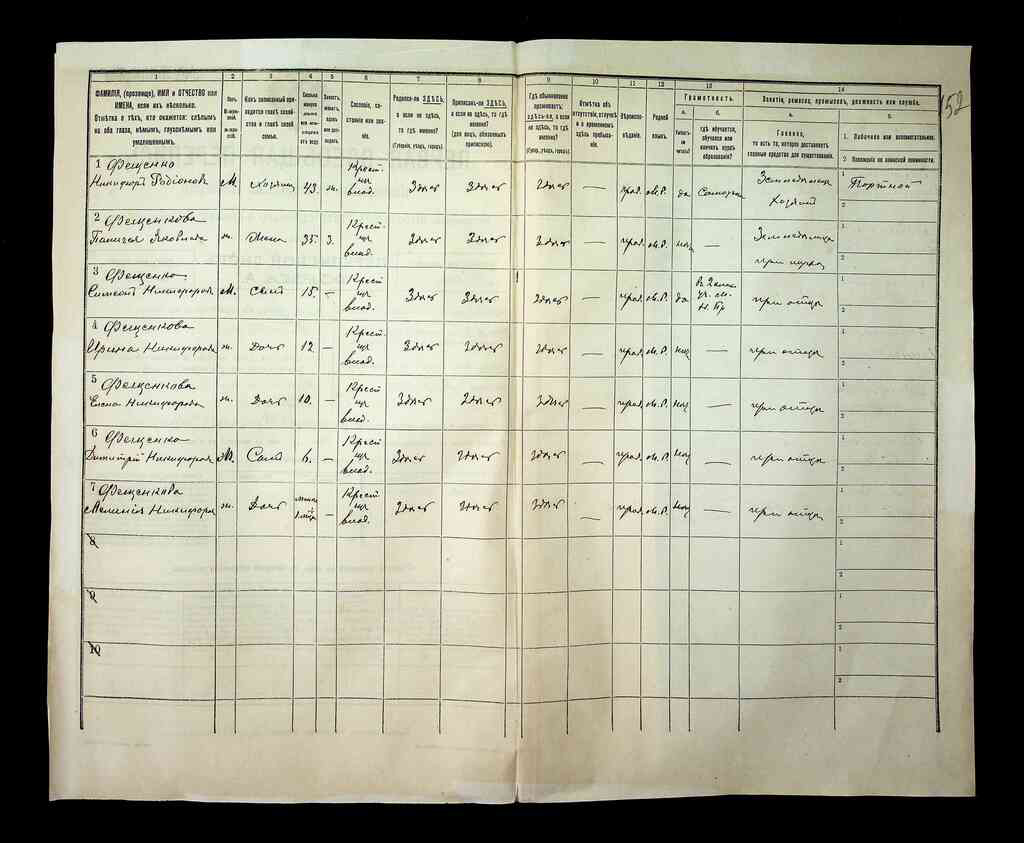 152
1 2 3 4 5 6 7 8 9 10 11 12 13 14
ФАМИЛІЯ, (прозвище), ИМЯ и ОТЧЕСТВО или
ИМЕНА, если ихъ нѣсколько.
Отмѣтка о тѣхъ, кто окажется: слѣпымъ
на оба глаза, нѣмымъ, глухонѣмымъ или
умалишеннымъ.
Полъ.
Какъ записанный при-
ходится главѣ хозяй-
ства и главѣ своей
семьи.
Сословіе, со-
стояніе или зва-
ніе.
Родился-ли ЗДѢСЬ,
а если не здѣсь,
то гдѣ именно?
(Губернія, уѣздъ, городъ).
Приписанъ-ли ЗДѢСЬ,
а если не здѣсь, то гдѣ
именно?
(для лицъ, обязанныхъ
припискою).
Гдѣ обыкновенно
проживаетъ:
здѣсь-ли, а если
не здѣсь, то гдѣ
именно?
(Губер., уѣздъ, городъ).
Отмѣтка объ
отсутствіи, отлучкѣ
и о временномъ
здѣсь пребыва-
ніи.
Вѣроиспо-
вѣданіе.
Родной
языкъ.
Грамотность.
а. б.
Умѣетъ-
ли
читать?
гдѣ обучается,
обучался или
кончилъ курсъ
образованія?
Занятіе, ремесло, промыселъ, должность или служба.
а. б.
Главное,
то есть то, которое доставляетъ
главныя средства для существованія.
1. Побочное или вспомогательное.
2. Положеніе по воинской повинности.
1 Фещенко
Никифоръ Родіоновъ М. хозяинъ 43. ж. Крест. влад. Здѣсь Здѣсь Здѣсь — прав. м.р. да Земледѣлецъ хозяинъ 1 Портной
2
2 Фещенкова
Яковлева ж. Жена 35. з. Крест. влад. Здѣсь Здѣсь Здѣсь — прав. м.р. нѣтъ — при мужѣ 1
2
3 Фещенко
Никифоровъ М. Сынъ 15. — Крест. влад. Здѣсь Здѣсь Здѣсь — прав. м.р. да при отцѣ 1
2
4 Фещенкова
Ирина Никифорова ж. Дочь 12. — Крест. влад. Здѣсь Здѣсь Здѣсь — прав. м.р. нѣтъ — при отцѣ 1
2
5 Фещенкова
Елена Никифорова ж. Дочь 10. — Крест. влад. Здѣсь Здѣсь Здѣсь — прав. м.р. нѣтъ — при отцѣ 1
2
6 Фещенко
Димитрій Никифоровъ М. Сынъ 6. — Крест. влад. Здѣсь Здѣсь Здѣсь — прав. м.р. нѣтъ — при отцѣ 1
2
7 Фещенкова
Меланія Никифоров ж. Дочь — Крест. влад. Здѣсь Здѣсь Здѣсь — прав. м.р. нѣтъ — при отцѣ 1
2
8 1
2
9 1
2
10 1
2